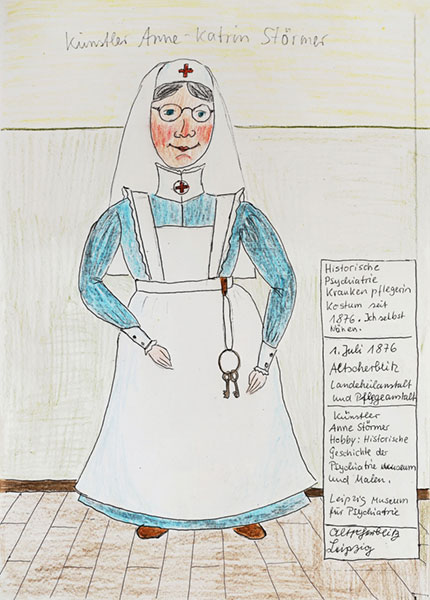 Künstler Anne-Katrin Störmer
Historische
Psychiatrie
Krankenpflegerin
Kostüm seit
1876. Ich selbst
Nähen.
1. Juli 1876
Altscherbitz
Landeheilanstalt
und Pfleggeanstalt
Künstler
Anne Störmer
Hobby: Historische
Geschichte der
Psychiatrie museum
und Malen.
Leipzig Museum
für Psychiatrie
Leipzig